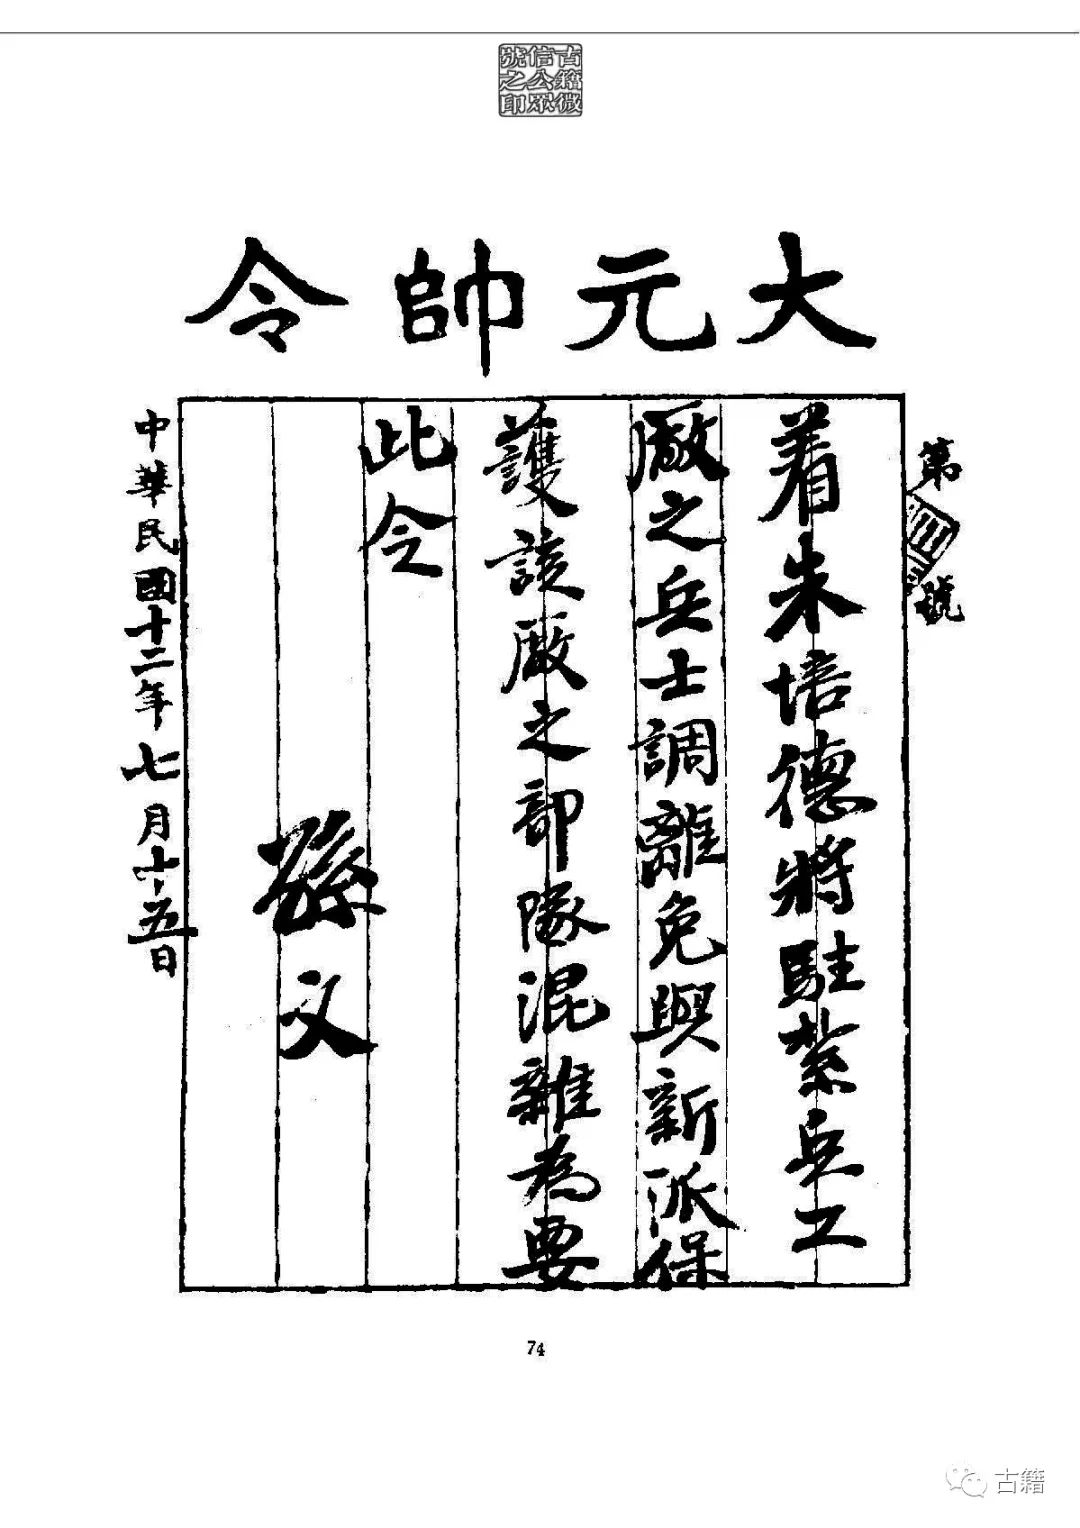 古籍微
信公眾
號之印
大元帥令
第號
着朱培德將駐紮兵工
廠之兵士調離免與新派保
護該廠之部隊混雜為要
此令
孫文
中華民國十二年七月十五日
74
古籍